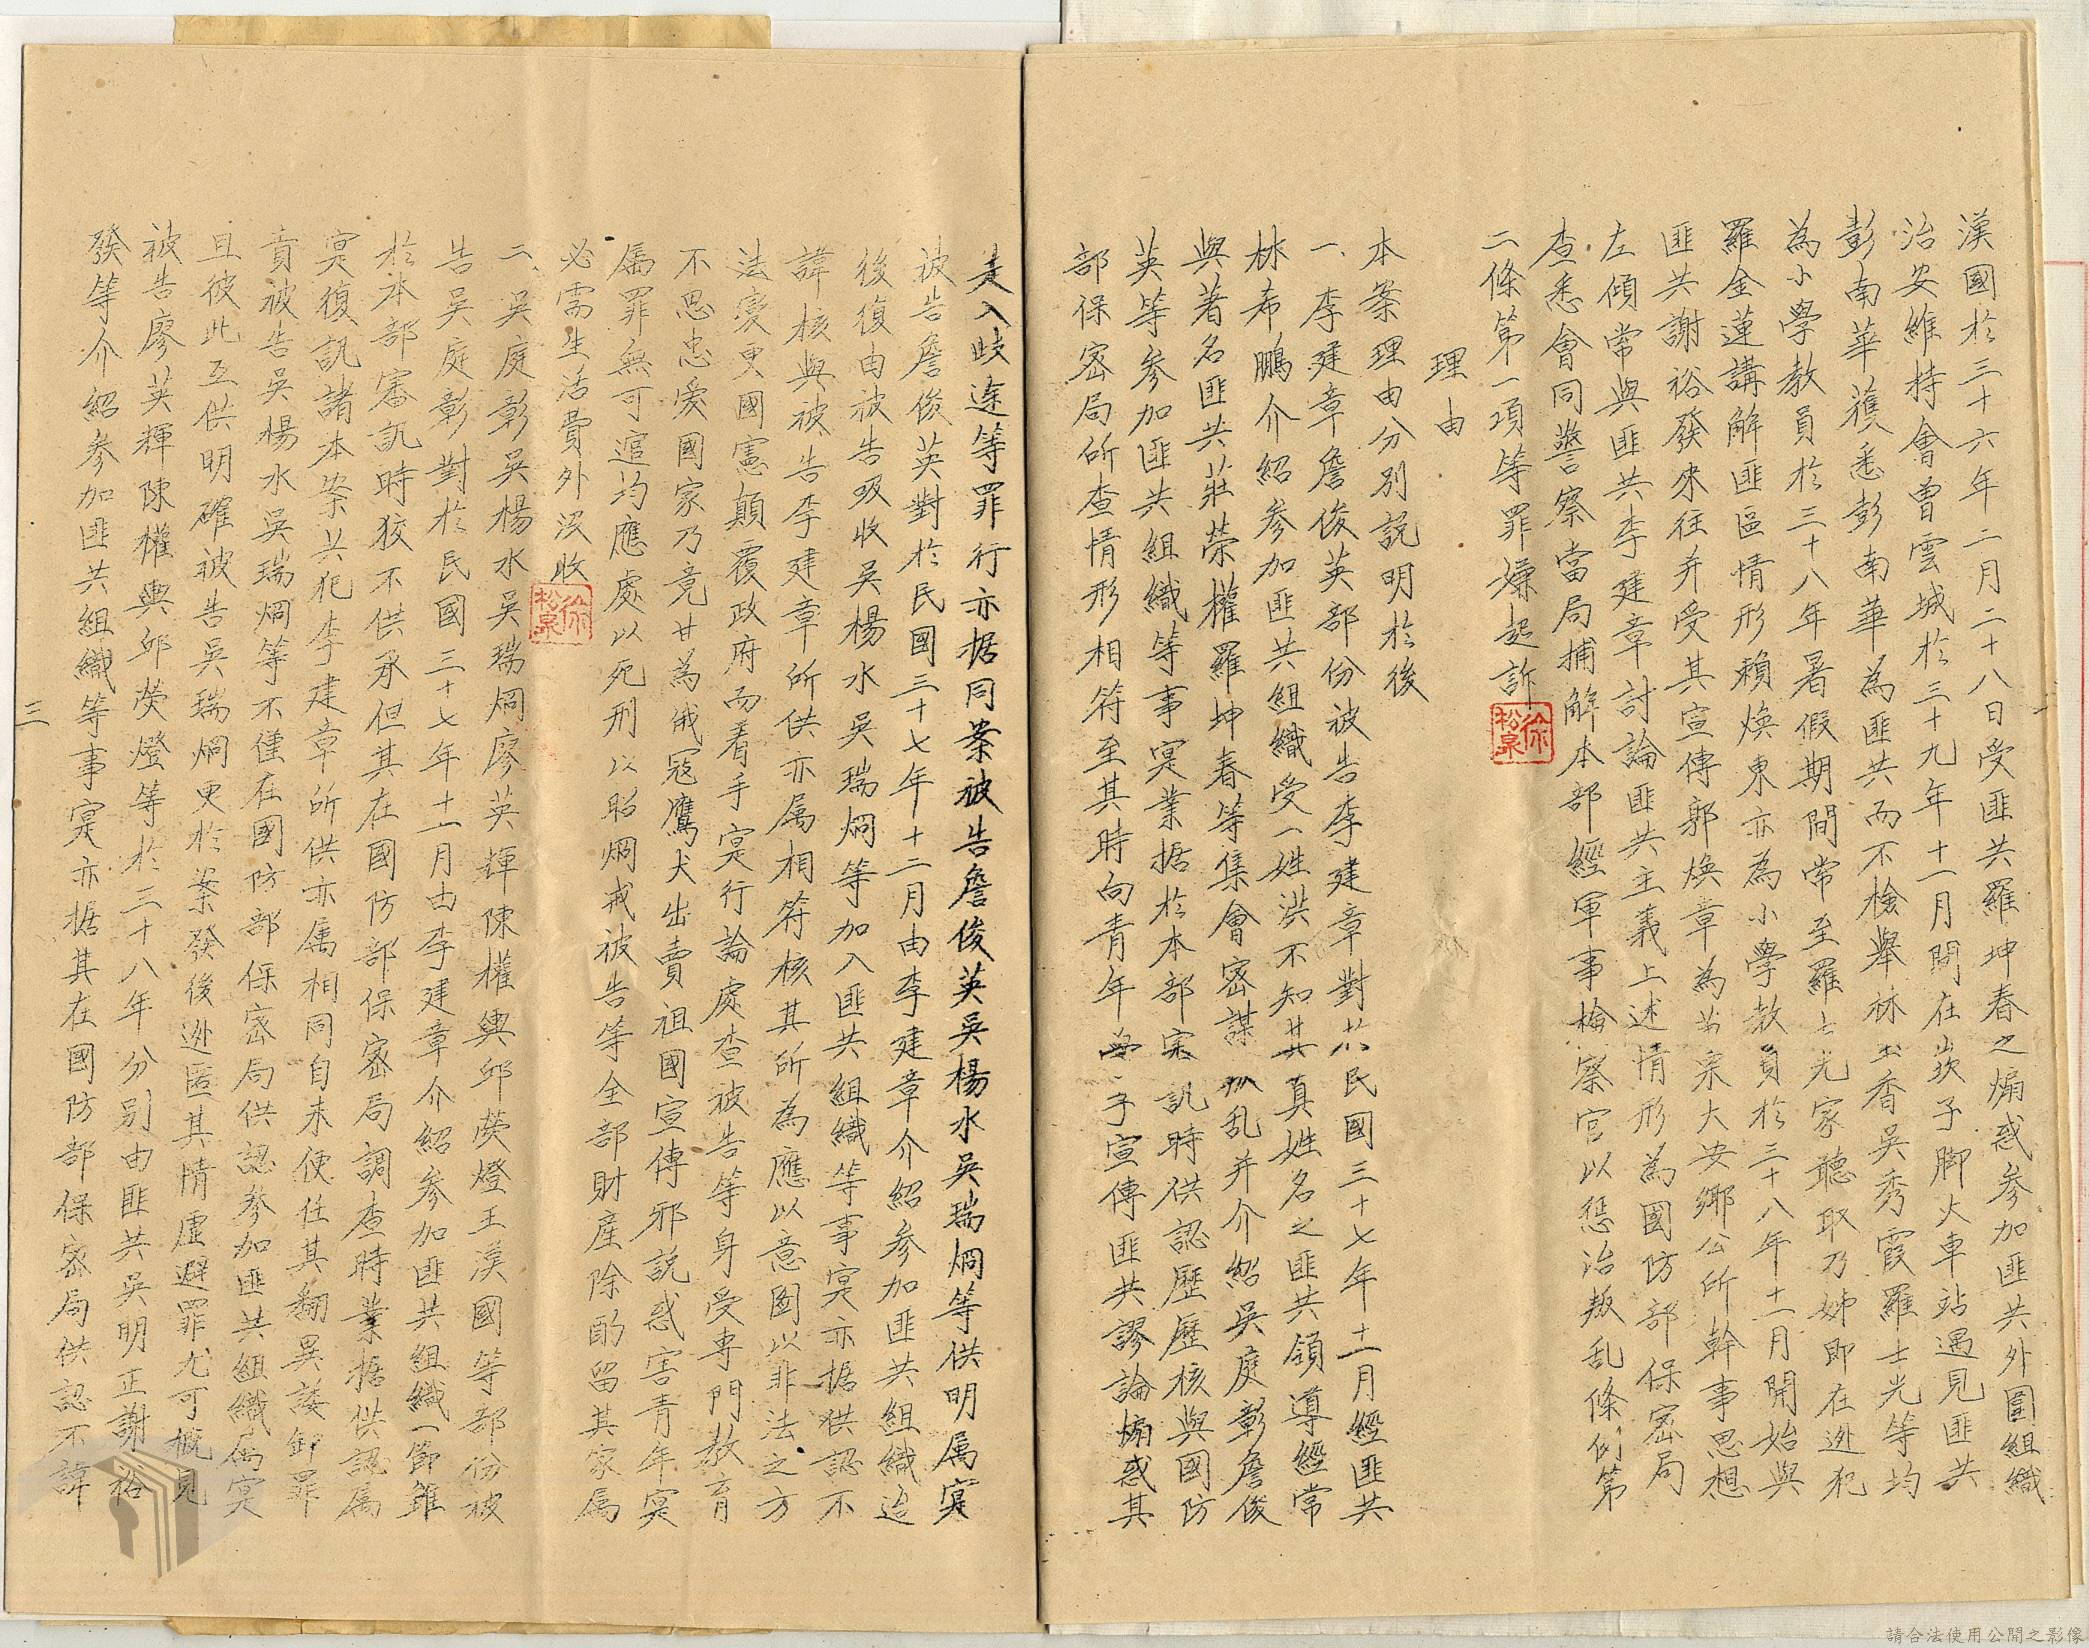 漢國於三十六年二月二十八日受匪共羅坤春之煽惑參加匪共外圍組織
治安維持會曾雲城於三十九年十一月間在崁子脚火車站遇見匪共
彭南華獲悉彭南華為匪共而不檢舉林玉香吳秀霞羅士光等均
為小學教員於三十八年暑假期間常至羅七光家聽取乃姊即在逃犯
羅金蓮講解匪區情形賴煥東亦為小學教員於三十八年十一月開始與
匪共謝裕發來往并受其宣傳郭煥章為苗栗大安鄉公所幹事思想
左傾常與匪共李建章討論匪共主義上述情形為國防部保密局
查悉會同警察當局捕解本部經軍事檢察官以懲治叛乱條例第
二條第一項等罪嫌起訴
徐松泉
理由
本案理由分別説明於後
一、李建章詹俊英部份被告李建章對於民國三十七年十一月經匪共
林希鵬介紹參加匪共組織受一姓洪不知其真姓名之匪共領導經常
與著名匪共莊榮權羅坤春等集會密謀叛乱并介紹吳庭彰詹俊
英等參加匪共組織等事寔業据於本部審訊時供認歷歷核與國防
部保密局所查情形相符至其時向青年學子宣傳匪共謬論煽惑其
走入歧途等罪行亦据同案被告詹俊英吳楊水吳瑞烱等供明属寔
被告詹俊英對於民國三十七年十二月由李建章介紹參加匪共組織迨
後復由被告吸收吳楊水吳瑞烱等加入匪共組織等事寔亦据供認不
諱核與被告李建章所供亦属相符核其所為應以意圖以非法之方
法変更國憲顛覆政府而着手寔行論處查被告等身受専門教育
不思忠爱國家乃竟甘為俄寇鷹犬出賣祖國宣傳邪説惑害青年寔
属罪無可逭均應處以死刑以昭烱戒被告等全部財産除酌留其家属
必需生活費外没收
徐松泉
二、吳庭彰吳楊水吳瑞烱廖英輝陳權興邱熒燈王漢國等部份被
告吳庭彰對於民國三十七年十一月由李建章介紹參加匪共組織一節雖
於本部審訊時狡不供承但其在國防部保密局調查時業据供認属
寔復訊諸本案共犯李建章所供亦属相同自未便任其翻異諉卸罪
責被告吳楊水吳瑞烱等不僅在國防部保密局供認參加匪共組織属寔
且彼此互供明確被告吳瑞烱更於案發後逃匿其情虚避罪尤可概見
被告廖英輝陳權興邱熒燈等於三十八年分別由匪共吳明正謝裕
發等介紹參加匪共組織等事寔亦据其在國防部保密局供認不諱
三
請合法使用公開之影像